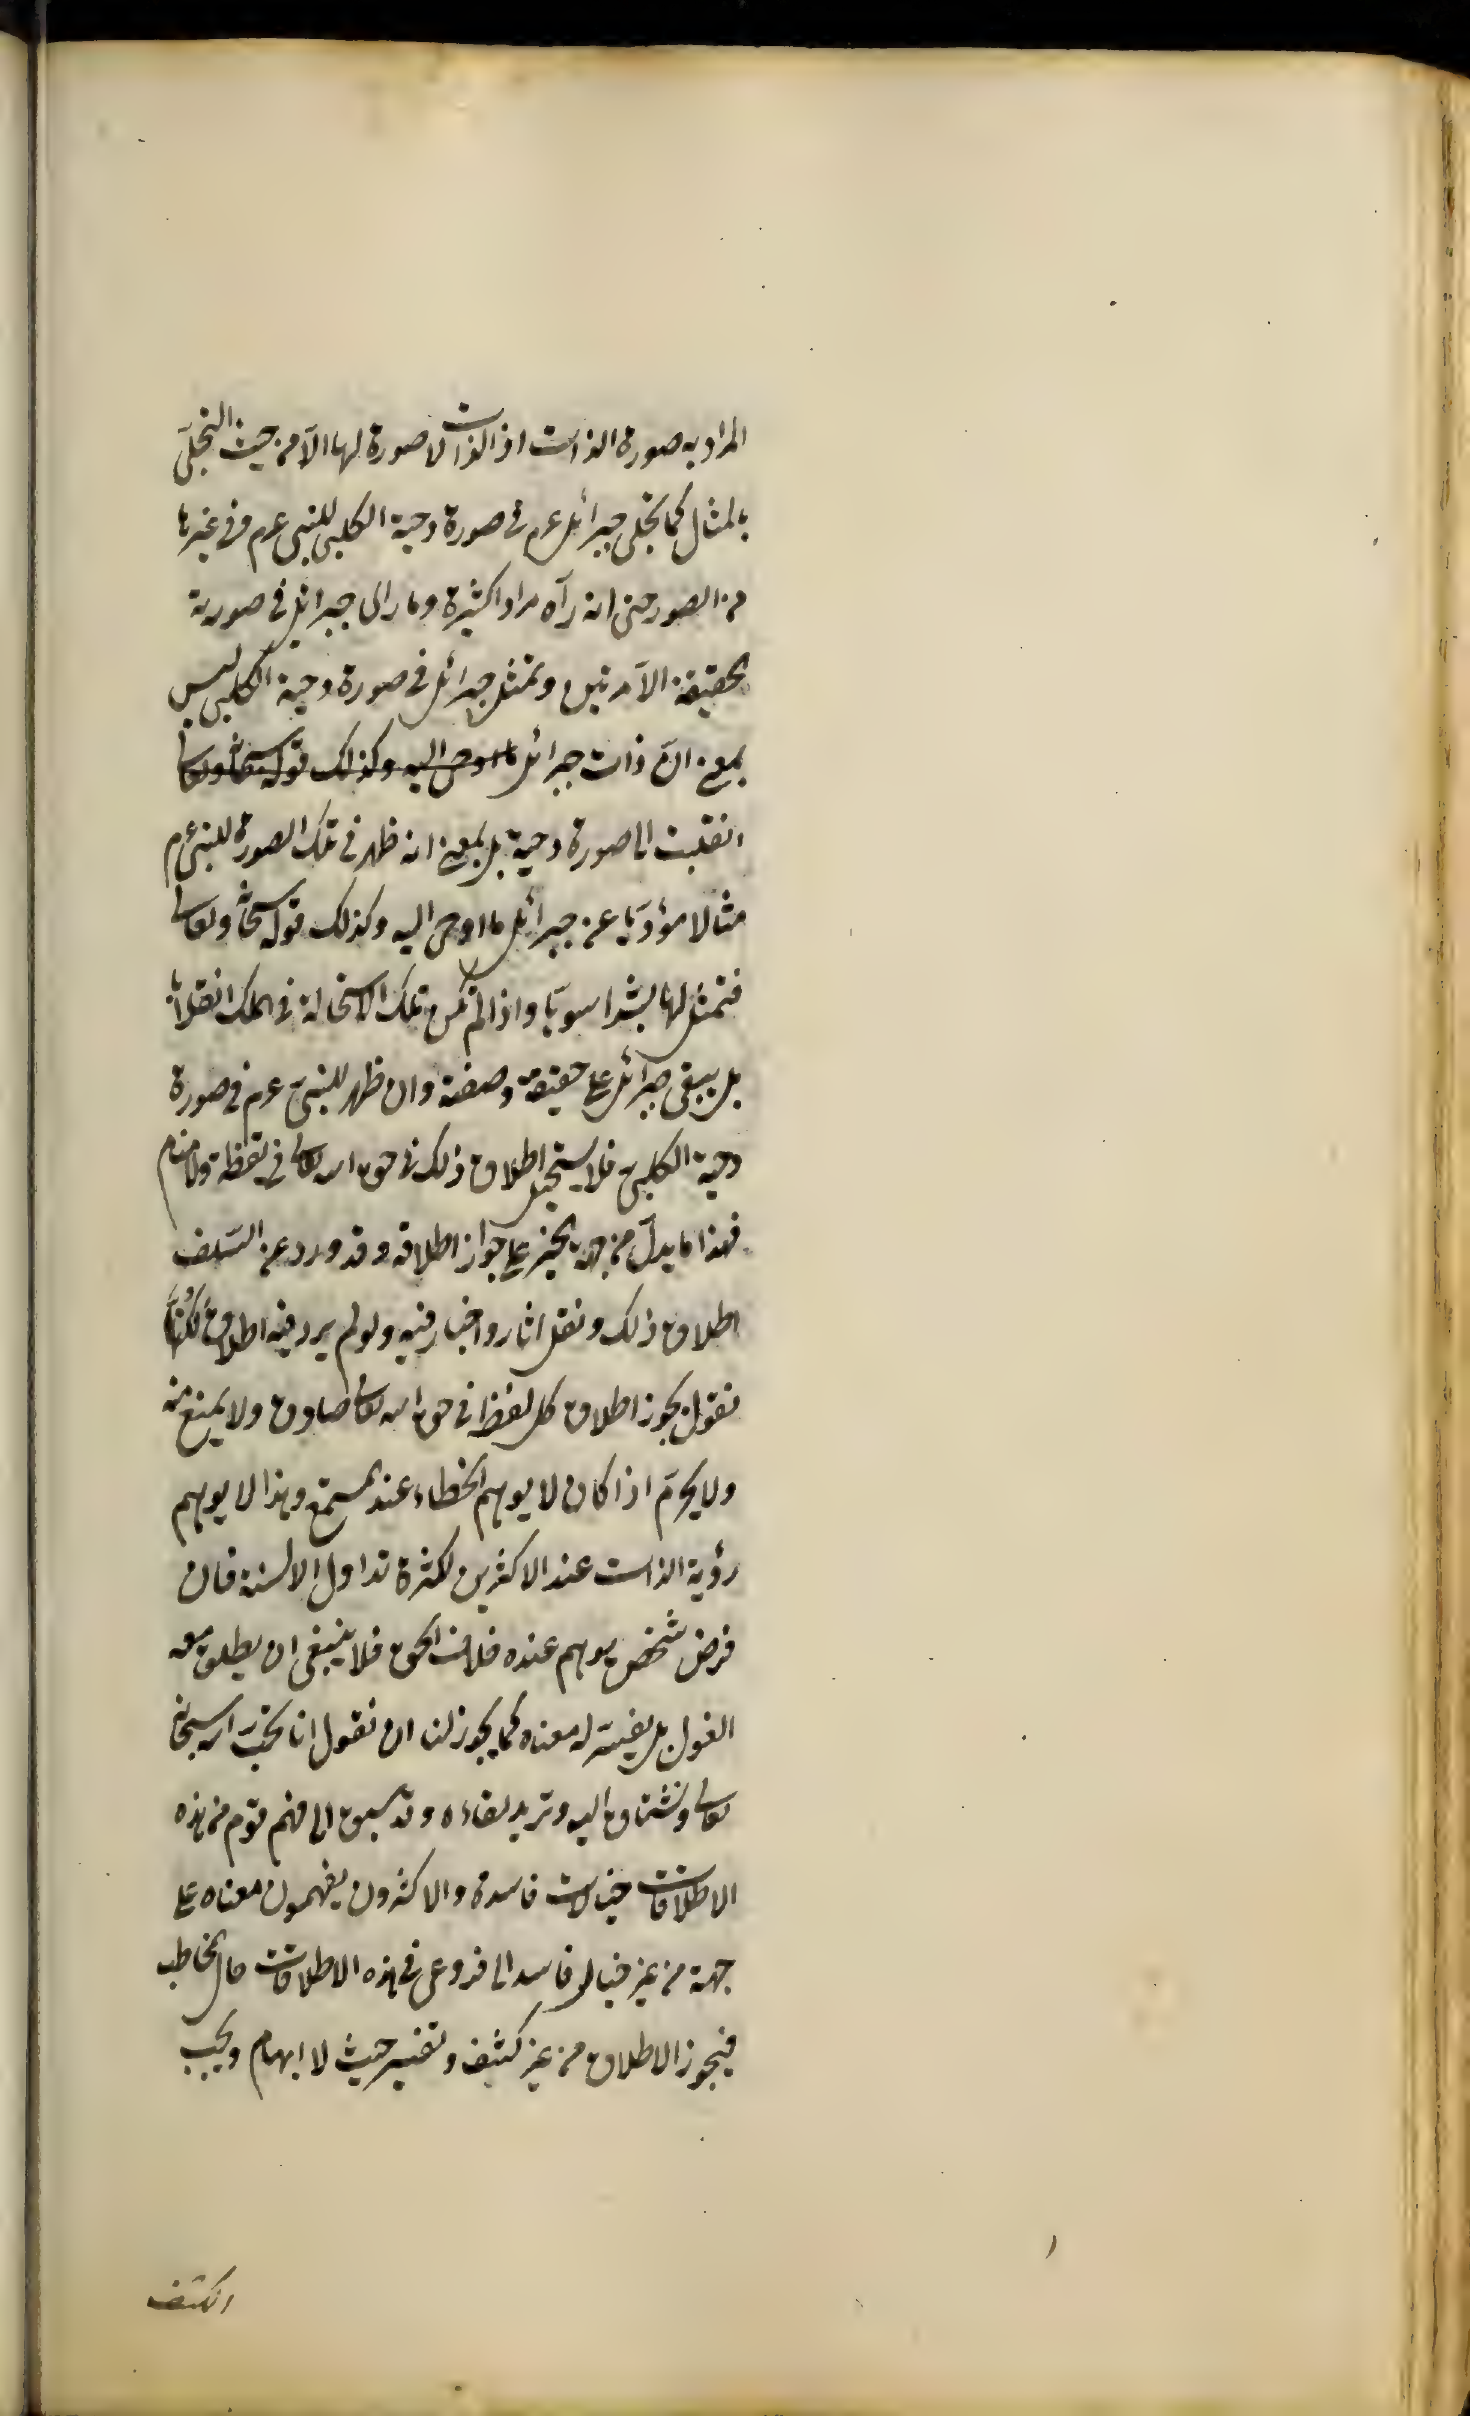 المراد به صورة الذات اذ الذات لا صورة لها الّا من حيث التجلّى
بالمثال كما تجلى جبرائل عم فى صورة دحية الكلبى للنبى عم وفى غيرها
من الصور حتى انه رآه مرارا كثيرة وما راى جبرائل فى صورته
الحقيقة الّا مرتين وتمثل جبرائل فى صورة دحية الكلبى ليس
بمعنى انّ ذات جبرائل ما اوحى اليه وكذلك قوله سبحانه وتعالى
انقلبت الى صورة دحية بل بمعنى انه ظهر فى تلك الصورة للنبى عم
مثالا مؤدّيا عن جبرائل ما اوحى اليه وكذلك قوله سبحانه وتعالى
فتمثل لها بشرا سويّا واذا لم تكن تلك الاستحالة فى الملك انقلابا
بل يبقى جبرائل على حقيقته وصفته وان ظهر للنبىّ عم فى صورة
دحية الكلبى فلا يستحيل اطلاق ذلك فى حق الله تعالى فى يقظة ولا منام
فهذا ما يدلّ من جهة الخبر على جواز اطلاقه وقد ورد عن السّلف
اطلاق ذلك ونقل اثار واخبار فيه ولو لم يرد فيه اطلاق لكُنّا
نقول يجوز اطلاق كل لفظ فى حق الله تعالى صادق ولا يمنع منه
ولا يحرّم اذا كان لا يوهم الخطاء عند المستمع وهذا لا يوهم
رؤية الذات عند الاكثرين لكثرة تداول الالسنة فان
فرض شخص يوهم عنده خلاف الحق فلا ينبغى ان يطلق معه
القول بل يفسّر له معناه كما يجوز لنا ان نقول انا نحبّ الله سبحانه
تعالى ونشتاق اليه ونريد لقاءه وقد سبق الى فهم قوم من هذه
الاطلاقات خيالات فاسدة والاكثرون يفهمون معناه على
جهة من غير خيال فاسد الى فروعى فى هذه الاطلاقات حال المخاطب
فيجوز الاطلاق من غير كشف وتفسير حيث لا ايهام ويجب
الكشف